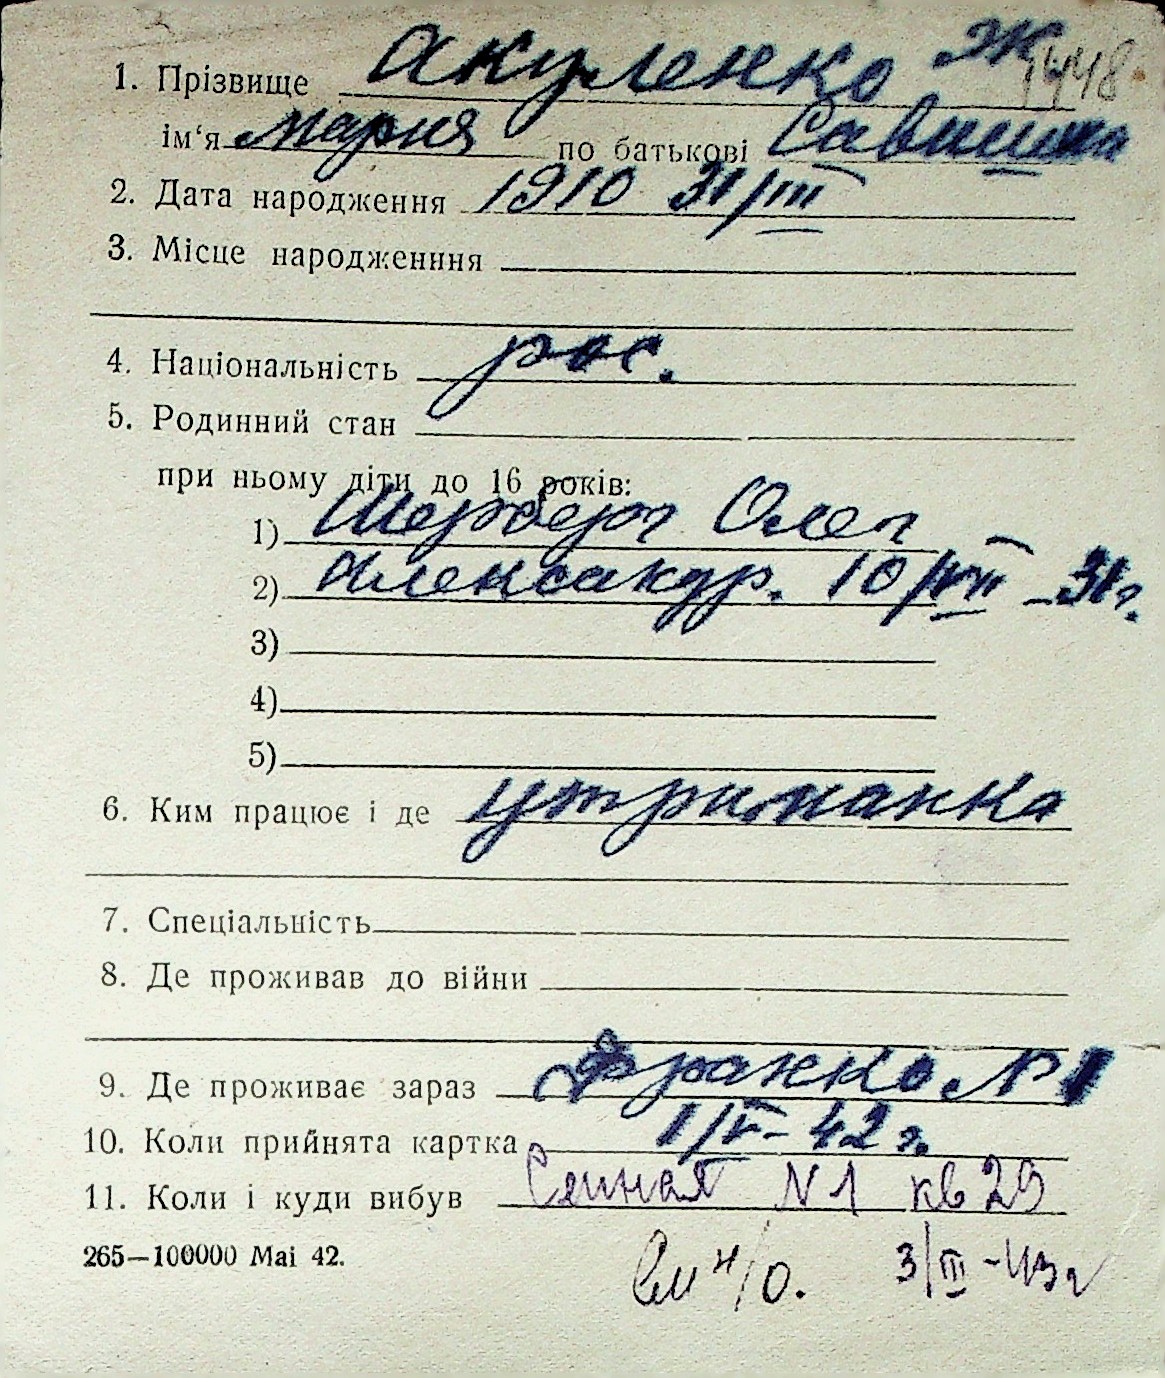 1. Прізвище Акуленко Ж 1448
ім‘я Мария по батькові Савишна
2. Дата народження 1910 31/III
3. Місце народженння
4. Національність рос.
5. Родинний стан
при ньому діти до 16 років:
1) Олег
2) Александр. 10/VII - 31 г.
3)
4)
5)
6. Ким працює і де утриманка
7. Спеціальність
8. Де проживав до війни
9. Де проживає зараз Франко № 1
10. Коли прийнята картка 1/V - 42 г.
11. Коли і куди вибув Сенная N 1 кв 29
265—100000 Mai 42.
См н/о. 3/III - 43 г